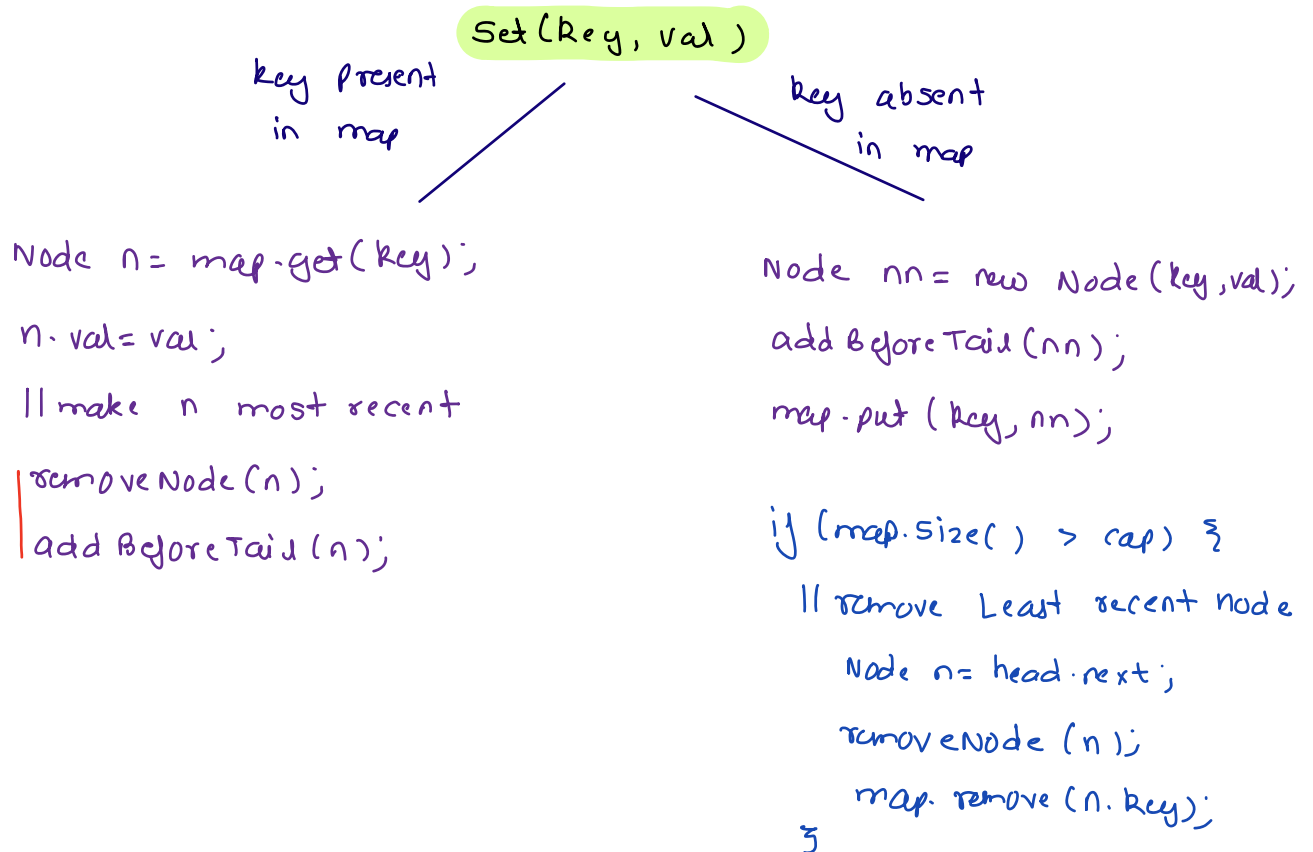 Set(key, val)
key present
in map
key absent
in map
Node n = map.get(key);
n.val = val;
// make n most recent
removeNode(n);
addBeforeTail(n);
Node nn = new Node(key, val);
addBeforeTail(nn);
map.put(key, nn);
if (map.size() > cap) {
// remove Least recent node
Node n = head.next;
removeNode(n);
map.remove(n.key);
}